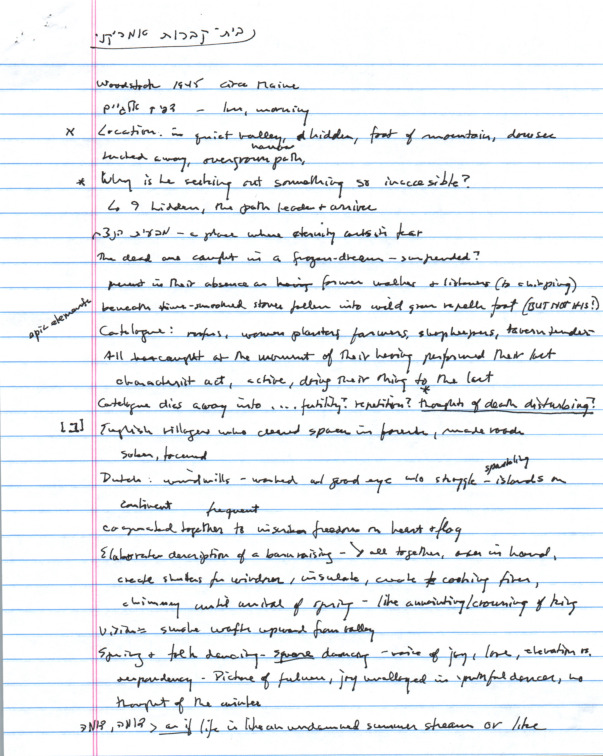 בית-קברות אמריקני
Woodstock 1945 circa Maine
– morning
* Location: in quiet valley, hidden, foot of mountain,
number
tucked away, overgrown path,
* Why is he seeking out something so inaccessible?
↳ 9 hidden, the path leader + arrives
– a place where eternity
The dead are caught in a frozen-dream – suspended?
present in their absence as having former walkers + listeners (to chirping)
epic elements
beneath stones fallen into wild grass repells foot (BUT NOT HIS!)
Catalogue: women planters farmers, shopkeepers, tavern tender
All caught at the moment of their having performed their last
characterist act, active, doing their thing to the last
Catalogue dies away into .... futility? repetition? thoughts of death disturbing?
[ב] English villagers who cleared spaces in forests, made roads
sober, focused
Dutch: windmills – worked w/ good eye w/o struggle – islands on
sparkling
continent frequent
congregated together to inscribe freedom on heart + flag
Elaborate description of a barnraising – all together, axes in hand,
create shutters for windows, insulate, create cooking fires,
chimney until arrival of spring – like anointing/crowning of king
Vision = smoke wafts upward from valley
Spring + folk dancing – square dancing – voice of joy, love, elevation vs.
despondency – Picture of fulness, joy in youthful dances, no
thought of the winter
> as if life is like an undammed summer stream or like